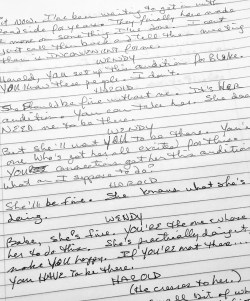 it NOW. I've been waiting to get on with
for years. They finally have made
me on some thing
call them back & tell them a meeting
then is INCONVENIENT for me.
WENDY
Harold, you set up this audition for Blake.
You know these people. I don't.
HAROLD
She should be fine without me. It's her
audition. You can take her. She doesn't
NEED me to be there.
WENDY
But she'll want YOU to be there. You're
one who's got her all excited for this.
YOU got her this audition
what am I suppose to do.
HAROLD
She'll be fine. She knows what she's
doing.
WENDY
Babe, she's fine. You're the one whose
her to do this. She's practically doing it
make YOU happy. If you're not there...
You HAVE to be there.
HAROLD
(He crosses to her.)